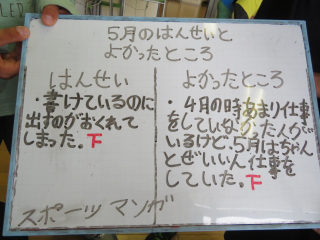 5月のはんせいと
よかったところ
はんせい
・書けているのに
出すのがおくれて
しまった。下
よかったところ
・4月の時あまり仕事
をしていなかった人が
いるけど、5月はちゃん
とぜいいん仕事を
していた。下
スポーツ マンガ